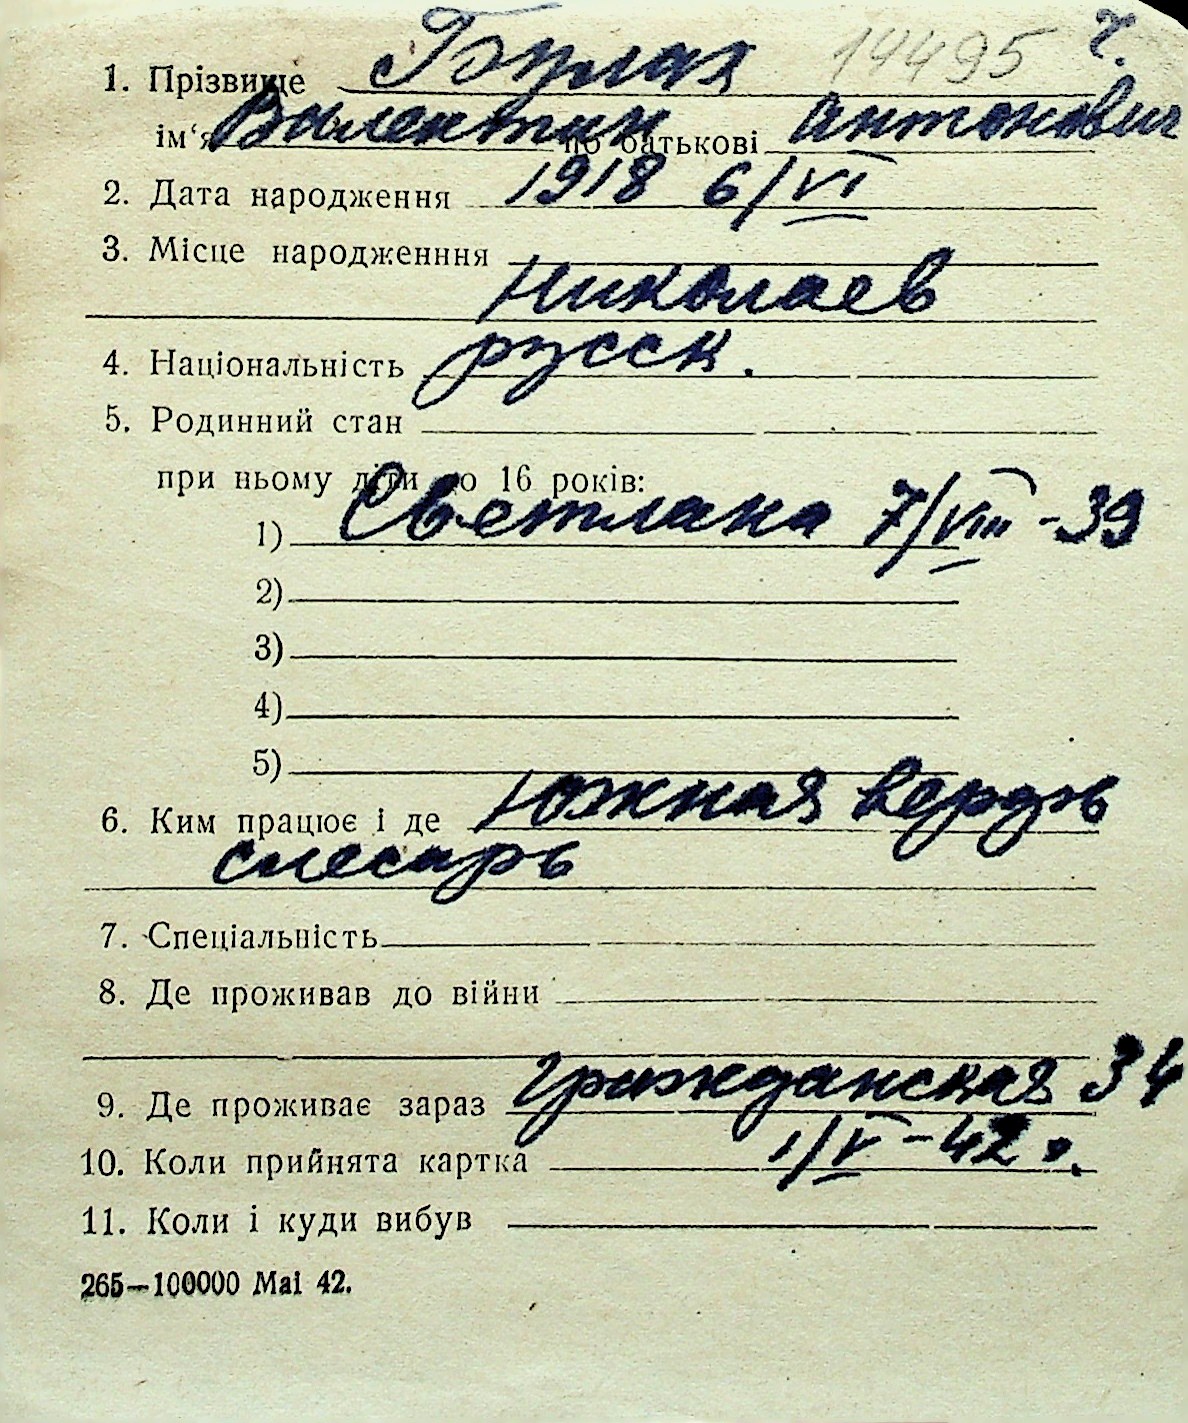 1. Прізвище Булах 14495 ч.
ім‘я Валентин по батькові Антонович
2. Дата народження 1918 6/VI
3. Місце народженння
Николаев
4. Національність русск.
5. Родинний стан
при ньому діти до 16 років:
1) Светлана 7/VIII - 39
2)
3)
4)
5)
6. Ким працює і де Южная верфь
слесарь
7. Спеціальність
8. Де проживав до війни
9. Де проживає зараз Гражданская 34
10. Коли прийнята картка 1/V - 42 г.
11. Коли і куди вибув
265—100000 Mai 42.